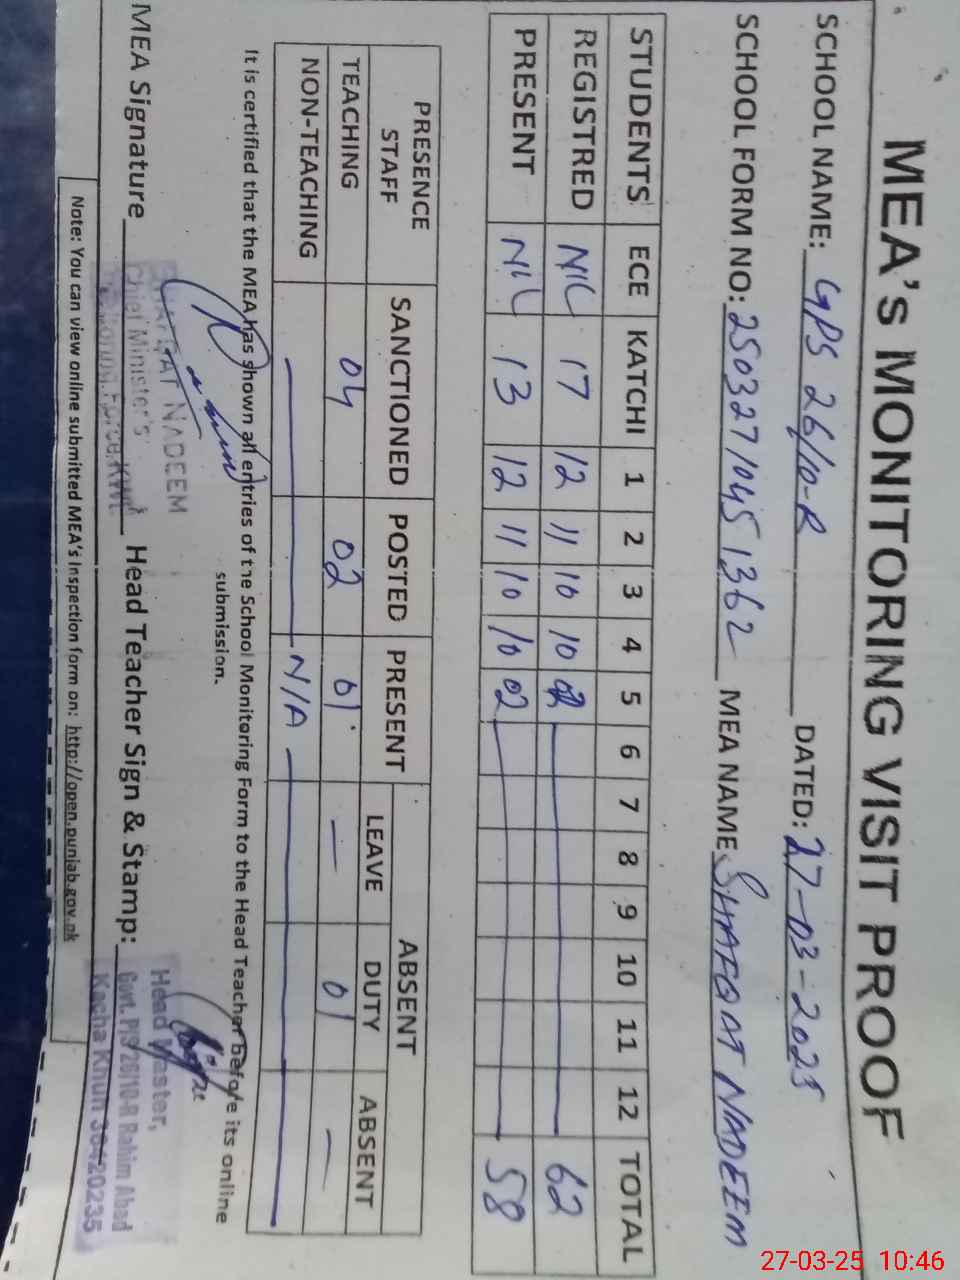 MEA's MONITORING VISIT PROOF
SCHOOL NAME: GPS 26/10-R DATED: 27-03-2025
SCHOOL FORM NO: 25032710451362 MEA NAME SHAFQAT NADEEM
STUDENTS ECE KATCHI 1 2 3 4 5 6 7 8 9 10 11 12 TOTAL
REGISTRED NIL 17 12 11 10 10 02 62
PRESENT NIL 13 12 11 10 10 02 58
PRESENCE STAFF SANCTIONED POSTED PRESENT ABSENT
LEAVE DUTY ABSENT
TEACHING 04 02 01 — 01 —
NON-TEACHING N/A
It is certified that the MEA has shown all entries of the School Monitoring Form to the Head Teacher before its online
submission.
SHAFQAT NADEEM
Chief Minister's
Monitoring Force KWL
Head Master,
Govt. P/S 26/10-R Rahim Abad
Kacha Khun 38420235
MEA Signature Head Teacher Sign & Stamp:
Note: You can view online submitted MEA's Inspection form on: http://open.punjab.gov.pk
27-03-25 10:46